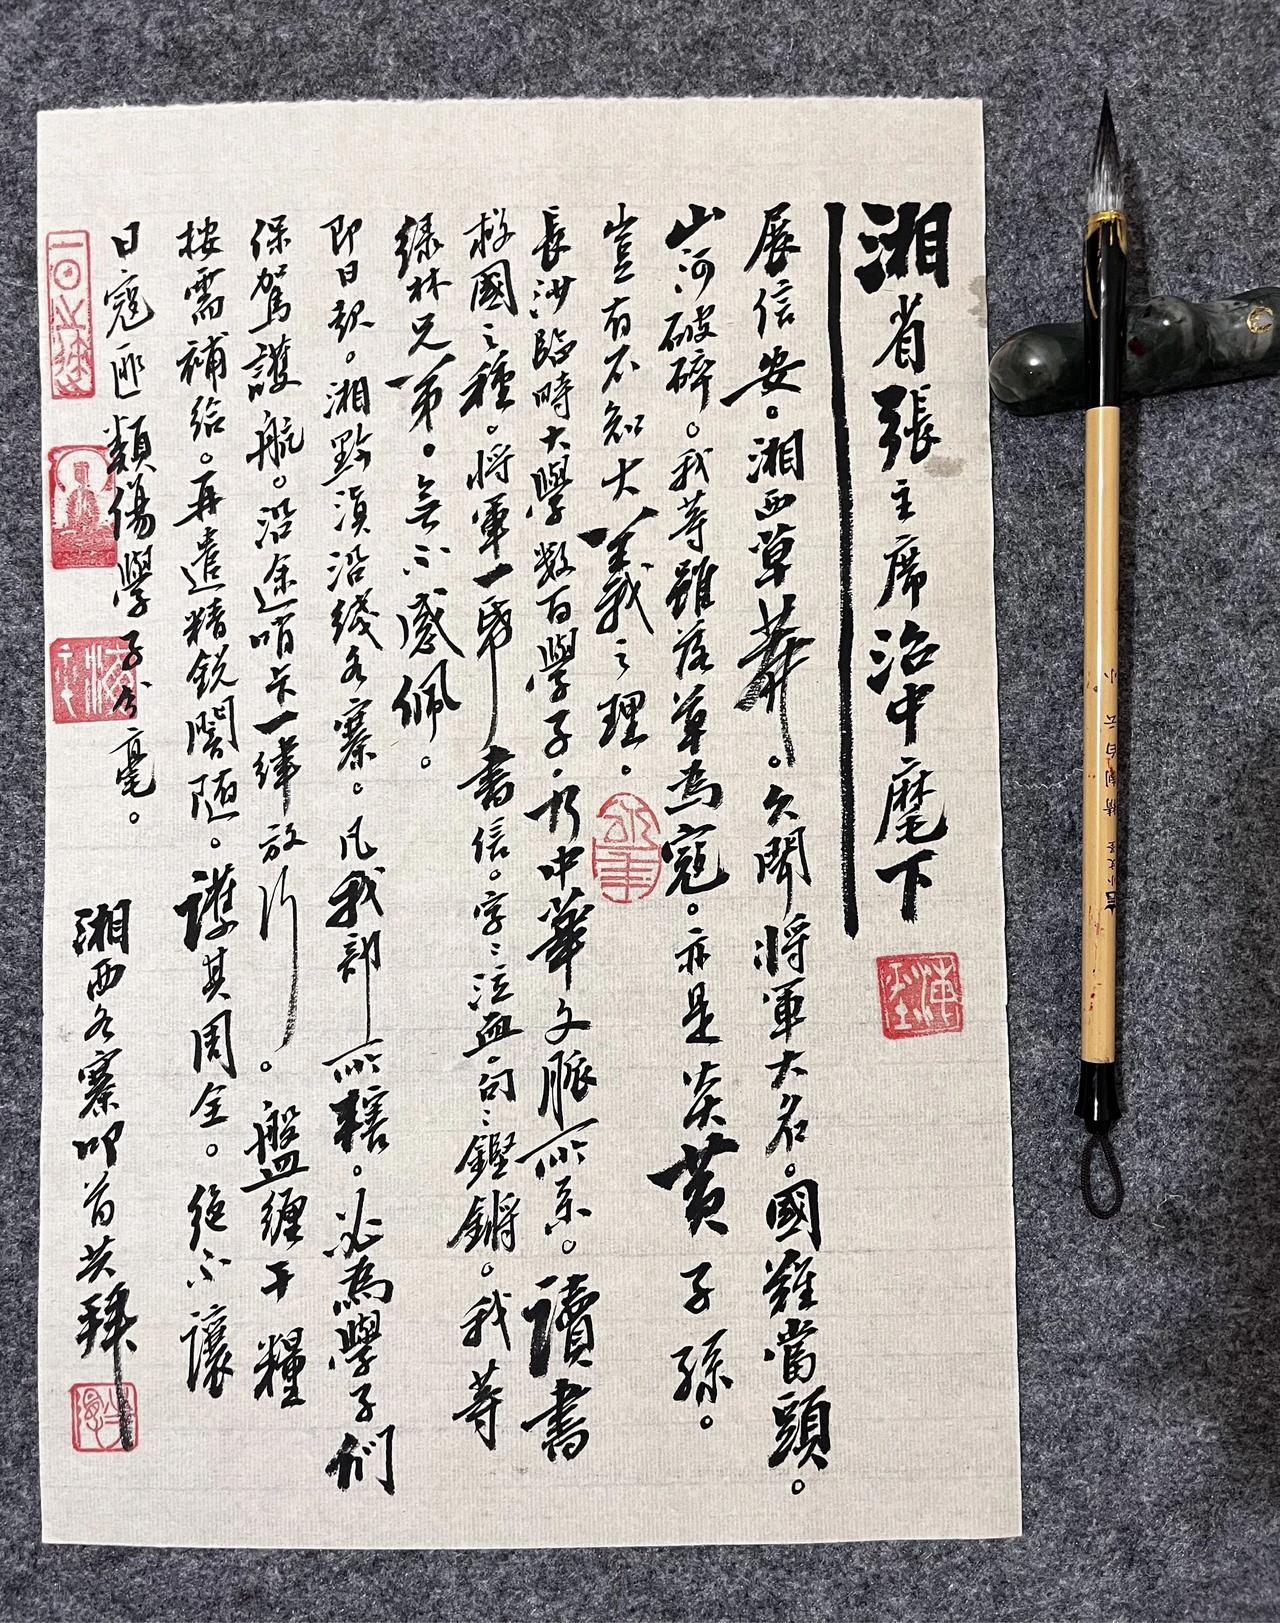 湘省張主席治中麾下
展信安。湘西草莽。久聞將軍大名。國難當頭。
山河破碎。我等雖落草為寇。亦是炎黃子孫。
豈有不知大義之理。
長沙臨時大學数百學子。乃中華文脈所系。讀書
救國之種。将軍一帋書信。字〻泣血。句〻鏗鏘。我等
緑林兄弟。無不感佩。
即日起。湘黔滇沿綫各寨。凡我部所轄。必為學子们
保駕護航。沿途哨卡一律放行。盤缠干糧
按需補给。再遣精鋭跟随。護其周全。绝不讓
日寇匪類傷學子分毫。
湘西各寨叩首共拜